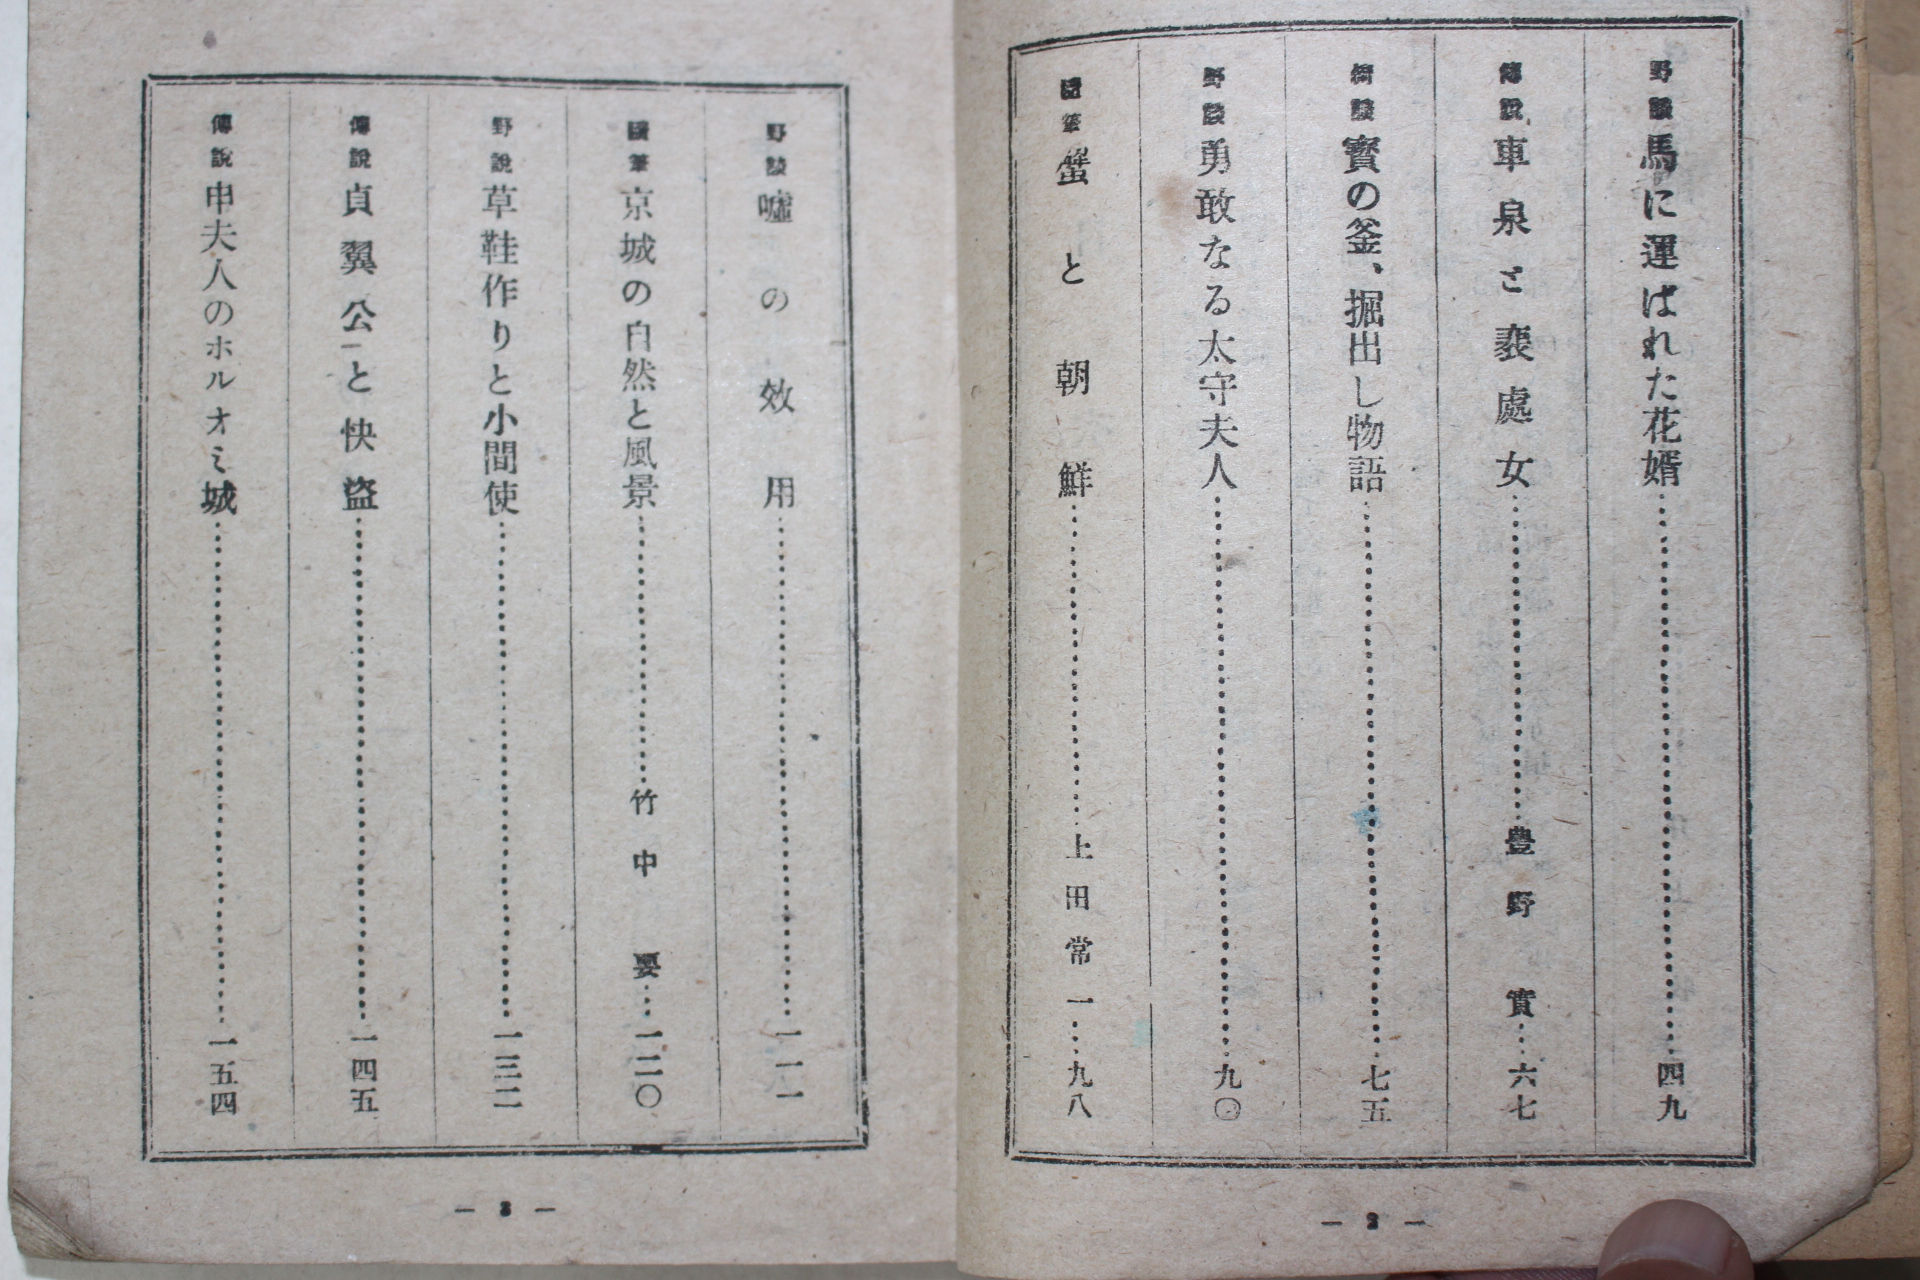 野談 馬に運ばれた花婿 四九
傳說 車泉と裵處女 豊野實 六七
綺談 寳の釜、掘出し物語 七五
野談 勇敢なる太守夫人 九〇
隨筆 蛍と朝鮮 上田常一 九八
― 2 ―
野談 嘘の效用 一一一
隨筆 京城の自然と風景 竹中要 一二〇
野說 草鞋作りと小間使 一三二
傳說 貞翼公と快盜 一四五
傳說 申夫人のホルオミ城 一五四
― 3 ―